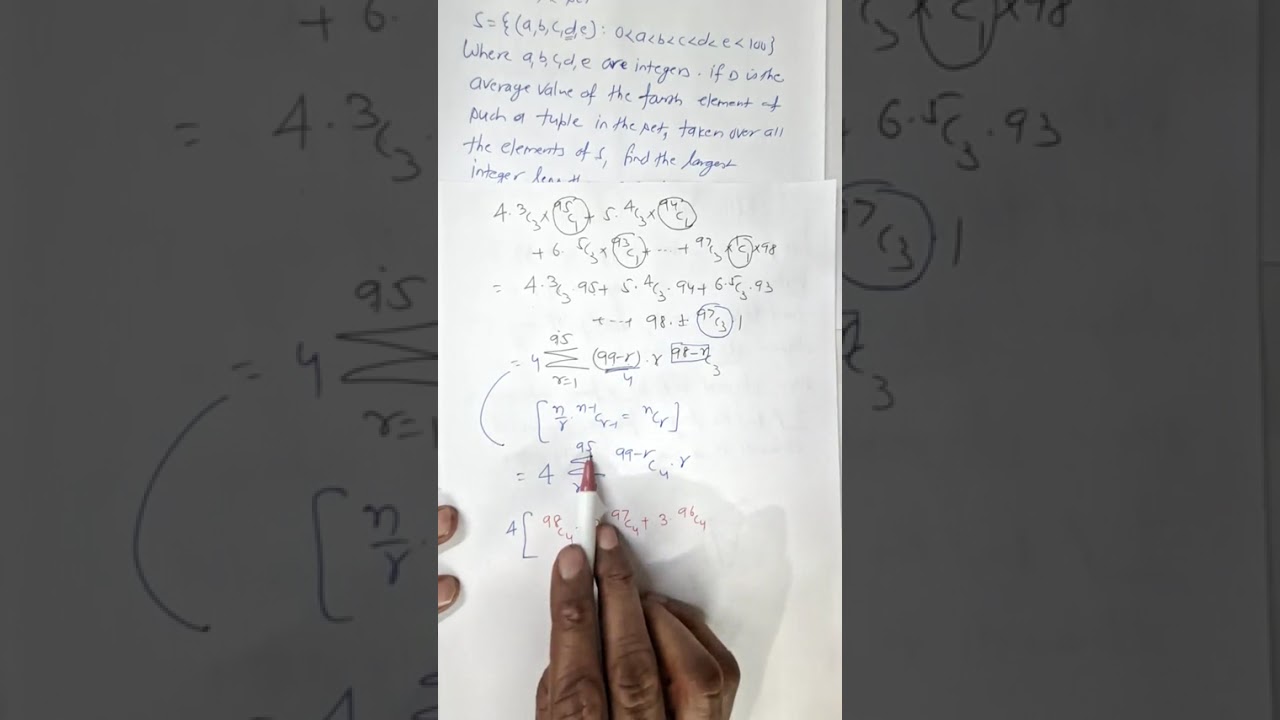 S={(a,b,c,d,e): 0<a<b<c<d<e<100}
Where a,b,c,d,e are integers. if D is the
average value of the fourth element of
such a tuple in the set, taken over all
the elements of S, find the largest
integer less th
4·³C₃×⁹⁵C₁+ 5·⁴C₃×⁹⁴C₁
+6·⁵C₃×⁹³C₁+ ···+⁹⁷C₃×¹C₁×98
= 4·³C₃·95+ 5·⁴C₃·94+6·⁵C₃·93
+···+ 98·⁹⁷C₃·1
= 4 95∑r=1 (99-r)/4 ·r ⁹⁸⁻ʳC₃
[n/r·ⁿ⁻¹Cᵣ₋₁ = ⁿCᵣ]
= 4 95∑ ⁹⁹⁻ʳC₄·r
4[ ⁹⁸C₄ ⁹⁷C₄+ 3·⁹⁶C₄